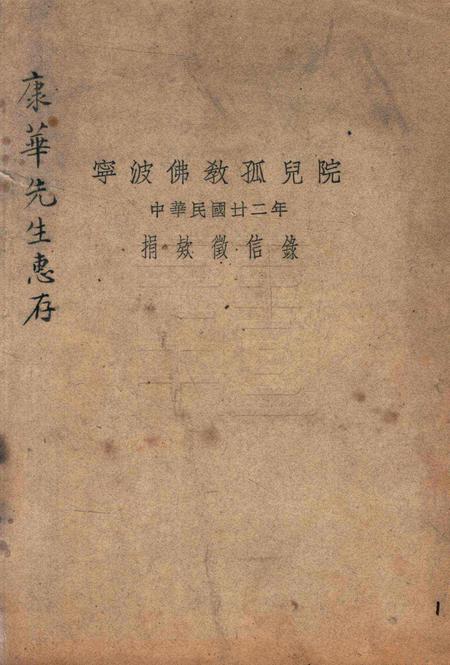 寧波佛教孤兒院
中華民國廿二年
捐欵徵信錄
康華先生惠存
1